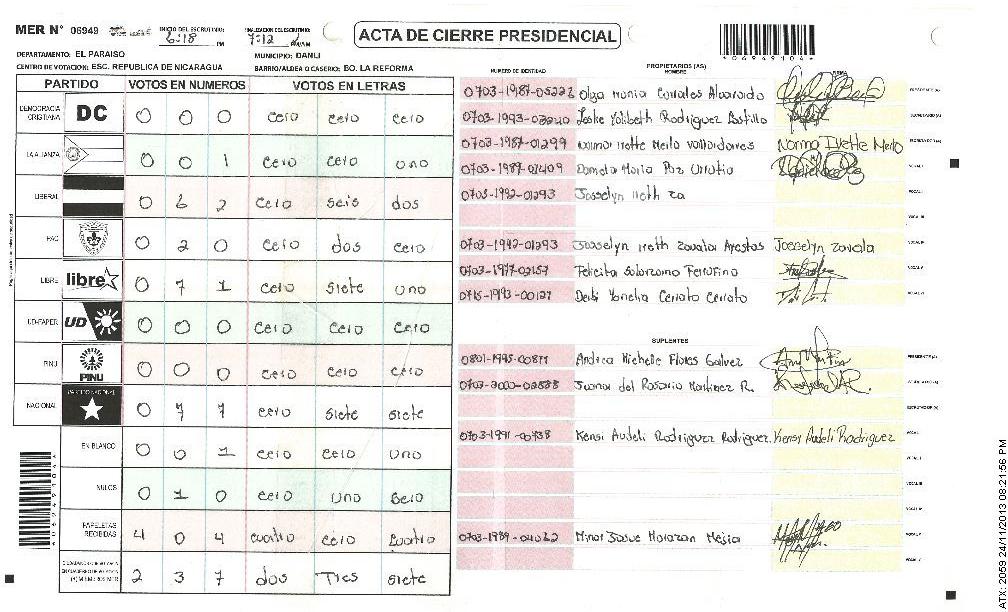 MER N° 06949 INICIO DEL ESCRUTINIO: 6:18 PM FINALIZACION DEL ESCRUTINIO: 7:12 PM/AM
ACTA DE CIERRE PRESIDENCIAL
*06949104*
DEPARTAMENTO: EL PARAISO MUNICIPIO: DANLI
CENTRO DE VOTACION: ESC. REPUBLICA DE NICARAGUA BARRIO/ALDEA O CASERIO: BO. LA REFORMA
PARTIDO VOTOS EN NUMEROS VOTOS EN LETRAS
DEMOCRACIA CRISTIANA DC 0 0 0 cero cero cero
LA ALIANZA 0 0 1 cero cero uno
LIBERAL 0 6 2 cero seis dos
PAC 0 2 0 cero dos cero
LIBRE libre 0 7 1 cero siete uno
UD-FAPER UD 0 0 0 cero cero cero
PINU PINU 0 0 0 cero cero cero
NACIONAL PARTIDO NACIONAL 0 7 7 cero siete siete
EN BLANCO 0 0 1 cero cero uno
NULOS 0 1 0 cero uno cero
PAPELETAS RECIBIDAS 4 0 4 cuatro cero cuatro
(+) MIEMBROS MER 2 3 7 dos Tres siete
NUMERO DE IDENTIDAD PROPIETARIOS (AS) NOMBRE FIRMA
0703-1987-05222 Olga Maria Corrales Alvarado PRESIDENTE (A)
0703-1993-03240 Leske Yolibeth Rodriguez Bustillo SECRETARIO (A)
0703-1987-01299 Norma Ivette Merlo Valladares Norma Ivette Merlo ESCRUTADOR (A)
0703-1989-01409 Pamela Maria Paz Urrutia VOCAL I
0703-1992-01293 Josselyn Ireth Za VOCAL II
VOCAL III
0703-1992-01293 Josselyn Ireth Zavala Ayestas Josselyn Zavala VOCAL IV
0703-1977-02157 Felicita Solorzano Ferrufino VOCAL V
0715-1993-00127 Derbi Yanelia Cerrato Cerrato VOCAL VI
SUPLENTES
0801-1995-00877 Andrea Michelle Flores Galvez PRESIDENTE (A)
Juana del Rosario Martinez R. SECRETARIO (A)
ESCRUTADOR (A)
0703-1991-00738 Kensi Audeli Rodriguez Rodriguez Kensy Audeli Rodriguez VOCAL I
VOCAL II
VOCAL III
VOCAL IV
0703-1989-04022 Minor Josue Morazan Mejia VOCAL V
*06949104*
ATX: 2059 24/11/2013 08:21:56 PM